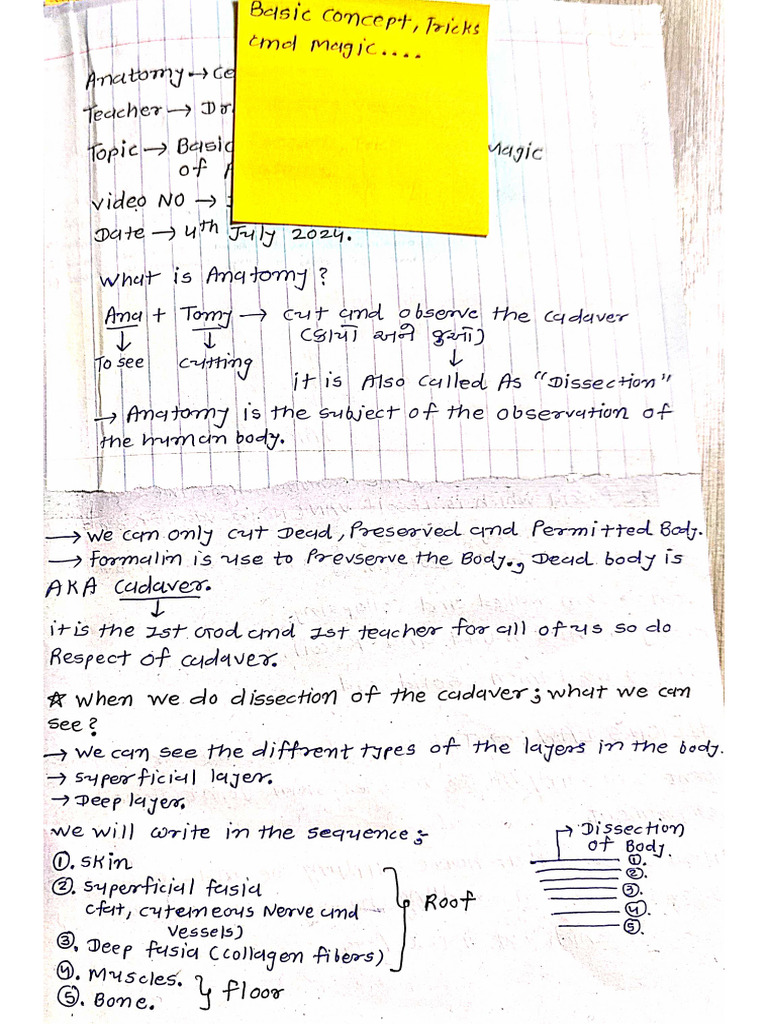 Basic concept, Tricks
and magic....
Anatomy → Ce
Teacher → Dr
Topic → Basic
Magic
of
video NO →
Date → 4th July 2024.
What is Anatomy?
Ana + Tomy → cut and observe the cadaver
(કાપો અને જુઓ)
To see cutting
it is Also called As "Dissection"
→ Anatomy is the subject of the observation of
the human body.
→ We can only cut Dead, Preserved and Permitted Body.
→ Formalin is use to Prevserve the Body., Dead body is
AKA Cadaver.
it is the 1st God and 1st teacher for all of us so do
Respect of cadaver.
☆ When we do dissection of the cadaver; what we can
see?
→ We can see the diffrent types of the layers in the body.
→ Superficial layer.
→ Deep layer.
We will write in the sequence;-
→ Dissection
of Body.
①. Skin
②. Superficial fasia
(fat, cuteneous Nerve and
vessels)
③. Deep fasia (collagen fibers)
Roof
④. Muscles.
⑤. Bone.
floor
①.
②.
③.
④.
⑤.